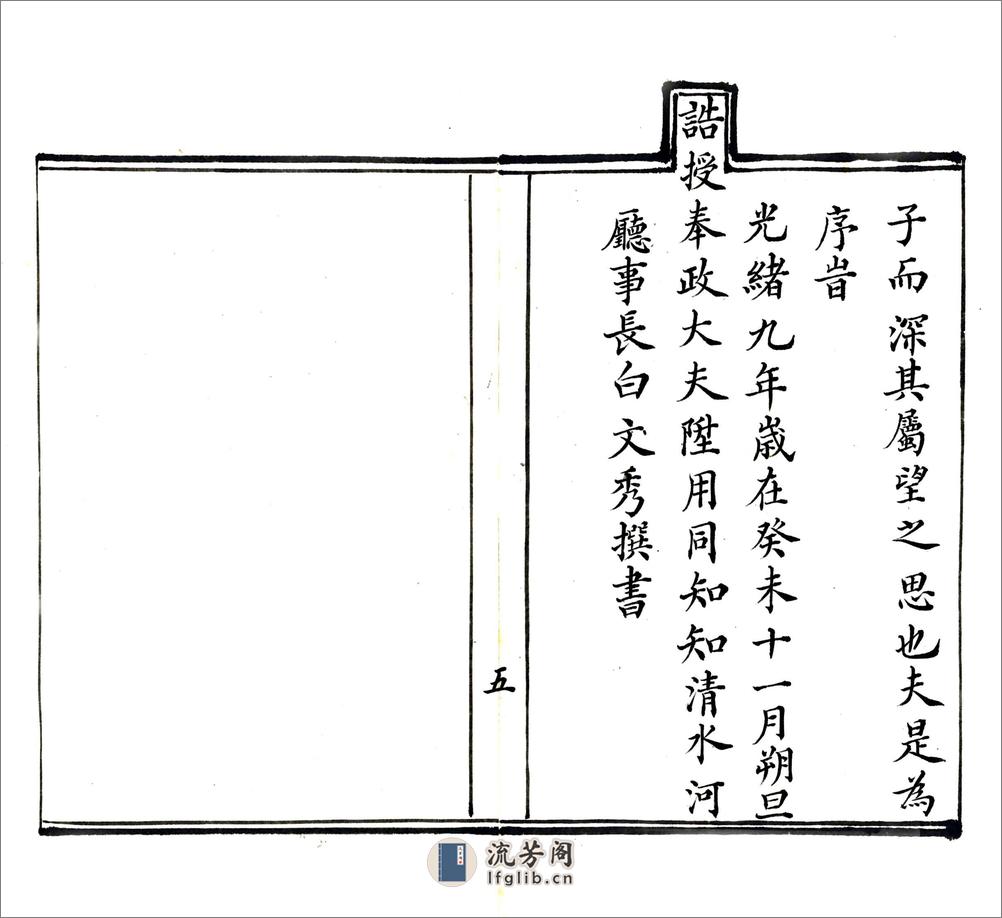 子而深其屬望之思也夫是為
序旹
光緒九年歲在癸未十一月朔旦
誥授奉政大夫陞用同知知清水河
廳事長白文秀撰書
五
流芳阁
lfglib.cn